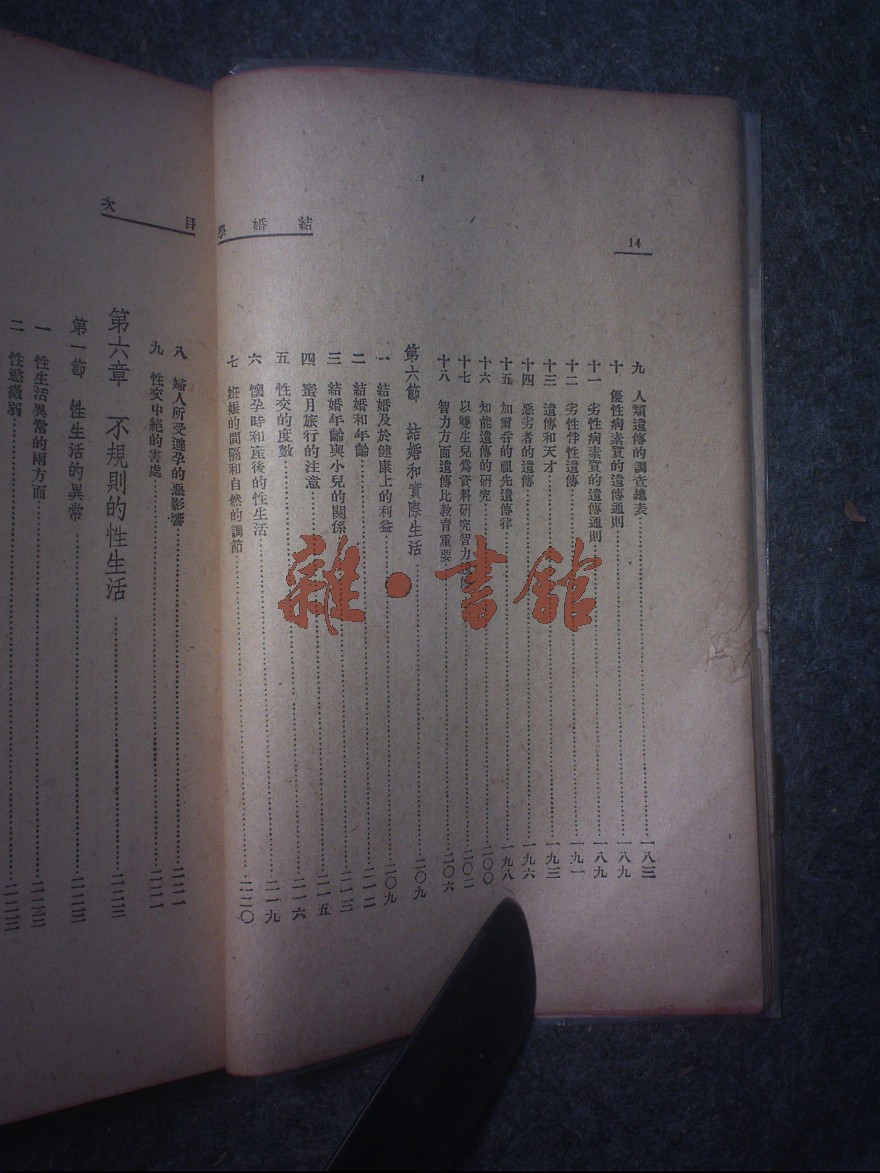 結婚學
14
九 人類遺傳的調查總表 一八三
十 優性病素質的遺傳通則 一八九
十一 劣性病素質的遺傳通則 一八九
十二 劣性伴性遺傳 一九一
十三 遺傳和天才 一九三
十四 惡劣者的遺傳 一九六
十五 加爾吞的祖先遺傳律 一九八
十六 知能遺傳的研究 二〇〇
十七 以雙生兒爲資料研究智力 二〇二
十八 智力方面遺傳比教育重要 二〇六
第六節 結婚和實際生活 二〇九
一 結婚及於健康上的利益 二〇九
二 結婚和年齡 二一二
三 結婚年齡與小兒的關係 二一三
四 蜜月旅行的注意 二一五
五 性交的度數 二一六
六 懷孕時和產後的性生活 二一九
七 妊娠的間隔和自然的調節 二二〇
目次
八 婦人所受連孕的惡影響 二二一
九 性交中絕的害處 二二一
第六章 不規則的性生活 二二三
第一節 性生活的異常 二二三
一 性生活異常的兩方面 二二三
二 性慾微弱 二二三
雜·書館